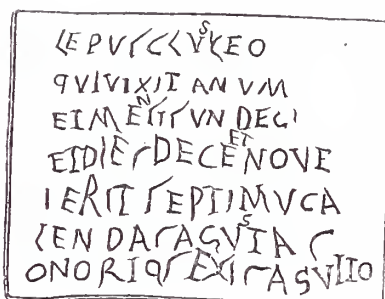 LEPVSCLVS LEO
QVIVIXIT ANVM
EIMENSIS VN DECI
EIDIES DECE ET NOVE
IERIT SEPTIMV CA
LENDAS AGVSTAS
ONORIO SEXIS AGVIIO